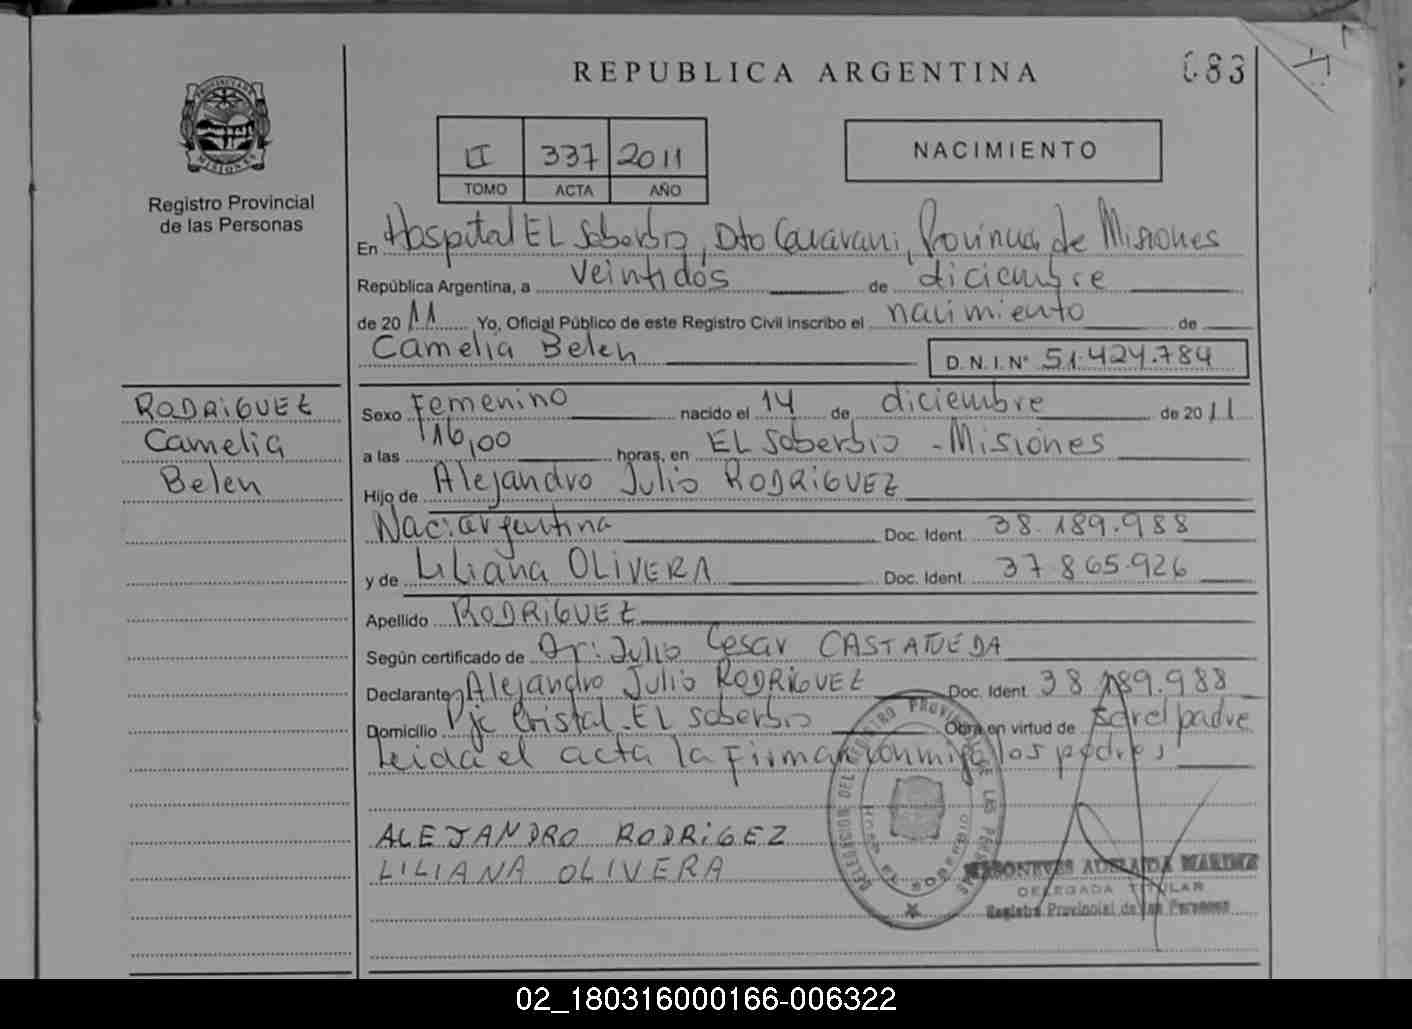 REPUBLICA ARGENTINA
083
PROVINCIA DE MISIONES
Registro Provincial
de las Personas
II 337 2011
TOMO ACTA AÑO
NACIMIENTO
En Hospital EL Soberbio, Dto Guarani, Provincia de Misiones
República Argentina, a veintidós de diciembre
de 2011 Yo, Oficial Público de este Registro Civil inscribo el nacimiento de
Camelia Belen D.N.I. Nº 51.424.784
RODRIGUEZ
Camelia
Belen
Sexo Femenino nacido el 14 de diciembre de 2011
a las 16,00 horas, en EL Soberbio - Misiones
Hijo de Alejandro Julio RODRIGUEZ
Nac. argentina Doc. Ident. 38.189.988
y de Liliana OLIVERA Doc. Ident. 37.865.926
Apellido RODRIGUEZ
Según certificado de Dr. Julio Cesar CASTAÑEDA
Declarante Alejandro Julio RODRIGUEZ Doc. Ident. 38.189.988
Domicilio Pje Cristal. EL Soberbio Obra en virtud de ser el padre
Leida el acta la firman conmigo los padres
ALEJANDRO RODRIGEZ
LILIANA OLIVERA
DELEGACION DEL REGISTRO PROVINCIAL DE LAS PERSONAS
ADELAIDA MARINA
DELEGADA TITULAR
Registro Provincial de las Personas
02_180316000166-006322